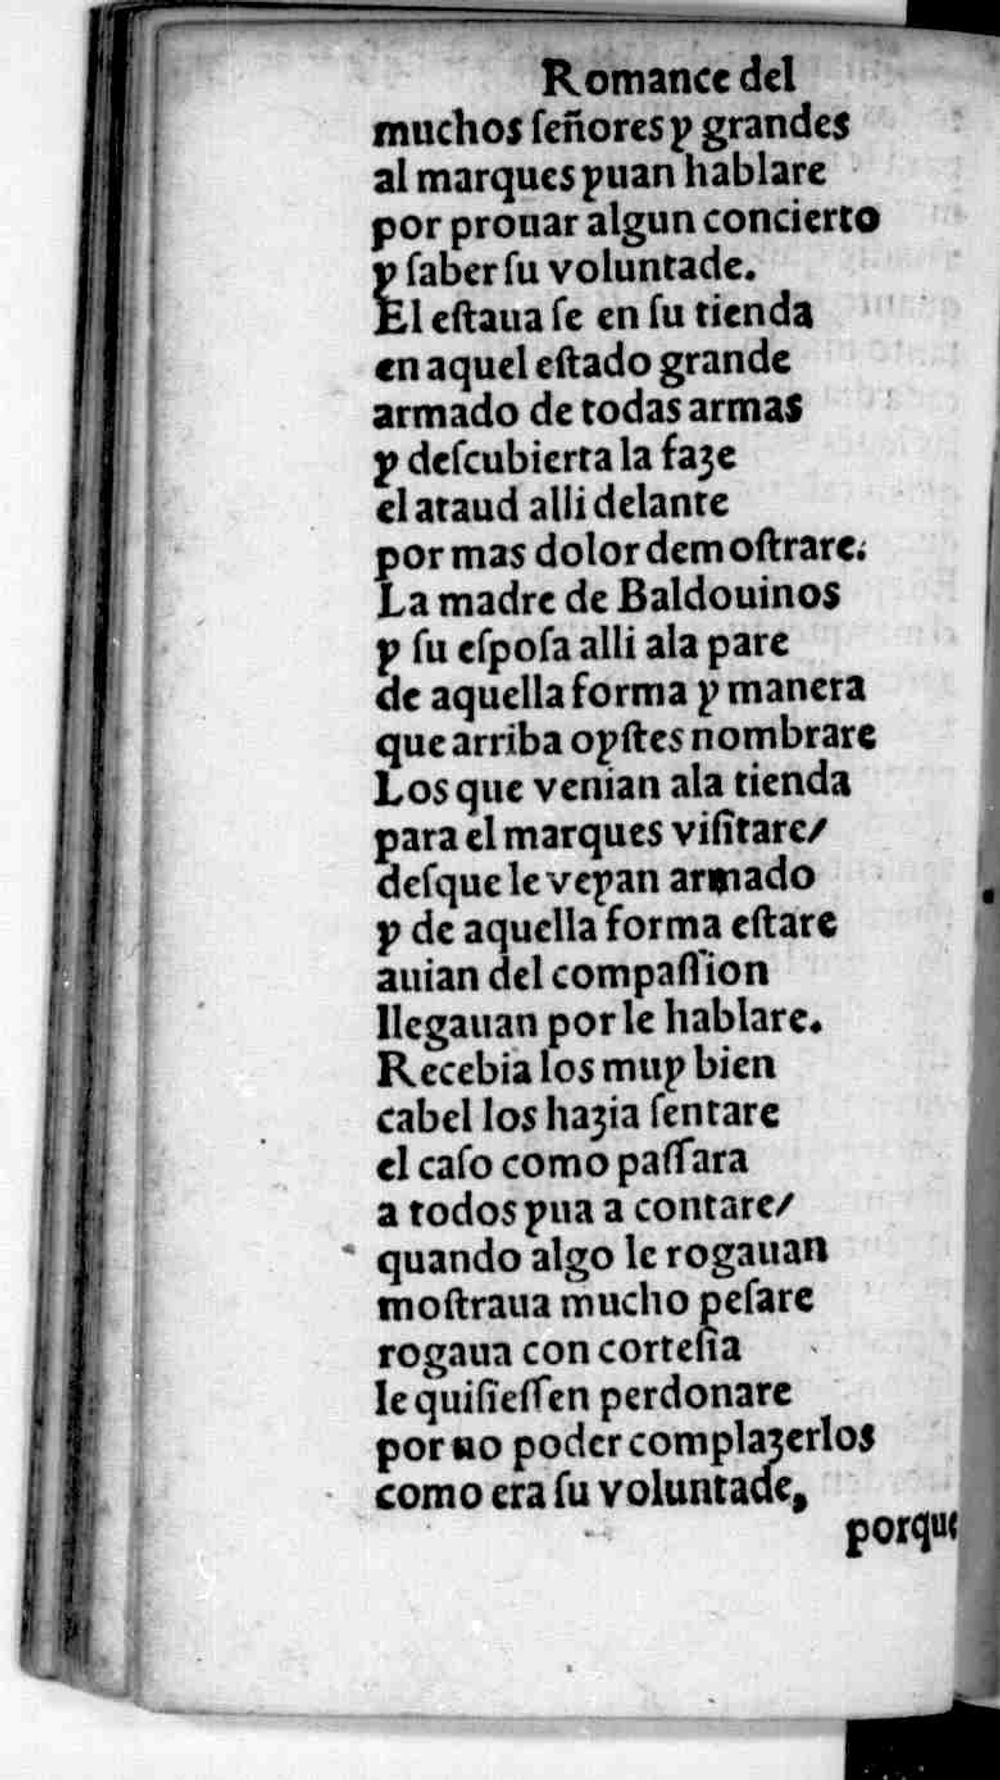 Romance del
muchos ſeñores y grandes
al marques yuan hablare
por prouar algun concierto
y ſaber ſu voluntade.
El eſtaua ſe en ſu tienda
en aquel eſtado grande
armado de todas armas
y deſcubierta la faze
el ataud alli delante
por mas dolor demoſtrare.
La madre de Baldouinos
y ſu eſpoſa alli ala pare
de aquella forma y manera
que arriba oyſtes nombrare
Los que venian ala tienda
para el marques viſitare/
deſque le veyan armado
y de aquella forma eſtare
auian del compaſſion
llegauan por le hablare.
Recebia los muy bien
cabel los hazia ſentare
el caſo como paſſara
a todos yua a contare/
quando algo le rogauan
moſtraua mucho peſare
rogaua con corteſia
le quiſieſſen perdonare
por no poder complazerlos
como era ſu voluntade,
porque